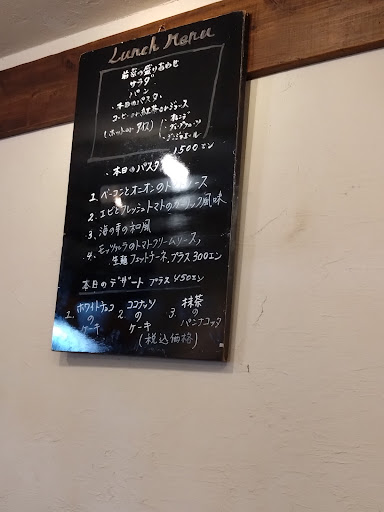 Lunch Menu
前菜の盛りあわせ
サラダ
パン
・本日のパスタ
コーヒー or 紅茶 or ジュース
(ホット or アイス)
・オレンジ
・グレープフルーツ
・ジンジャエール
1,500エン
・本日のパスタ
1. ベーコンとオニオンのトマトソース
2. エビとフレッシュトマトのガーリック風味
3. 海の幸の和風
4. モッツァレラのトマトクリームソース,
生麺フェットチーネ, プラス300エン
本日のデザート プラス450エン
1. ホワイトチョコのケーキ
2. ココナッツのケーキ
3. 抹茶のパンナコッタ
(税込価格)